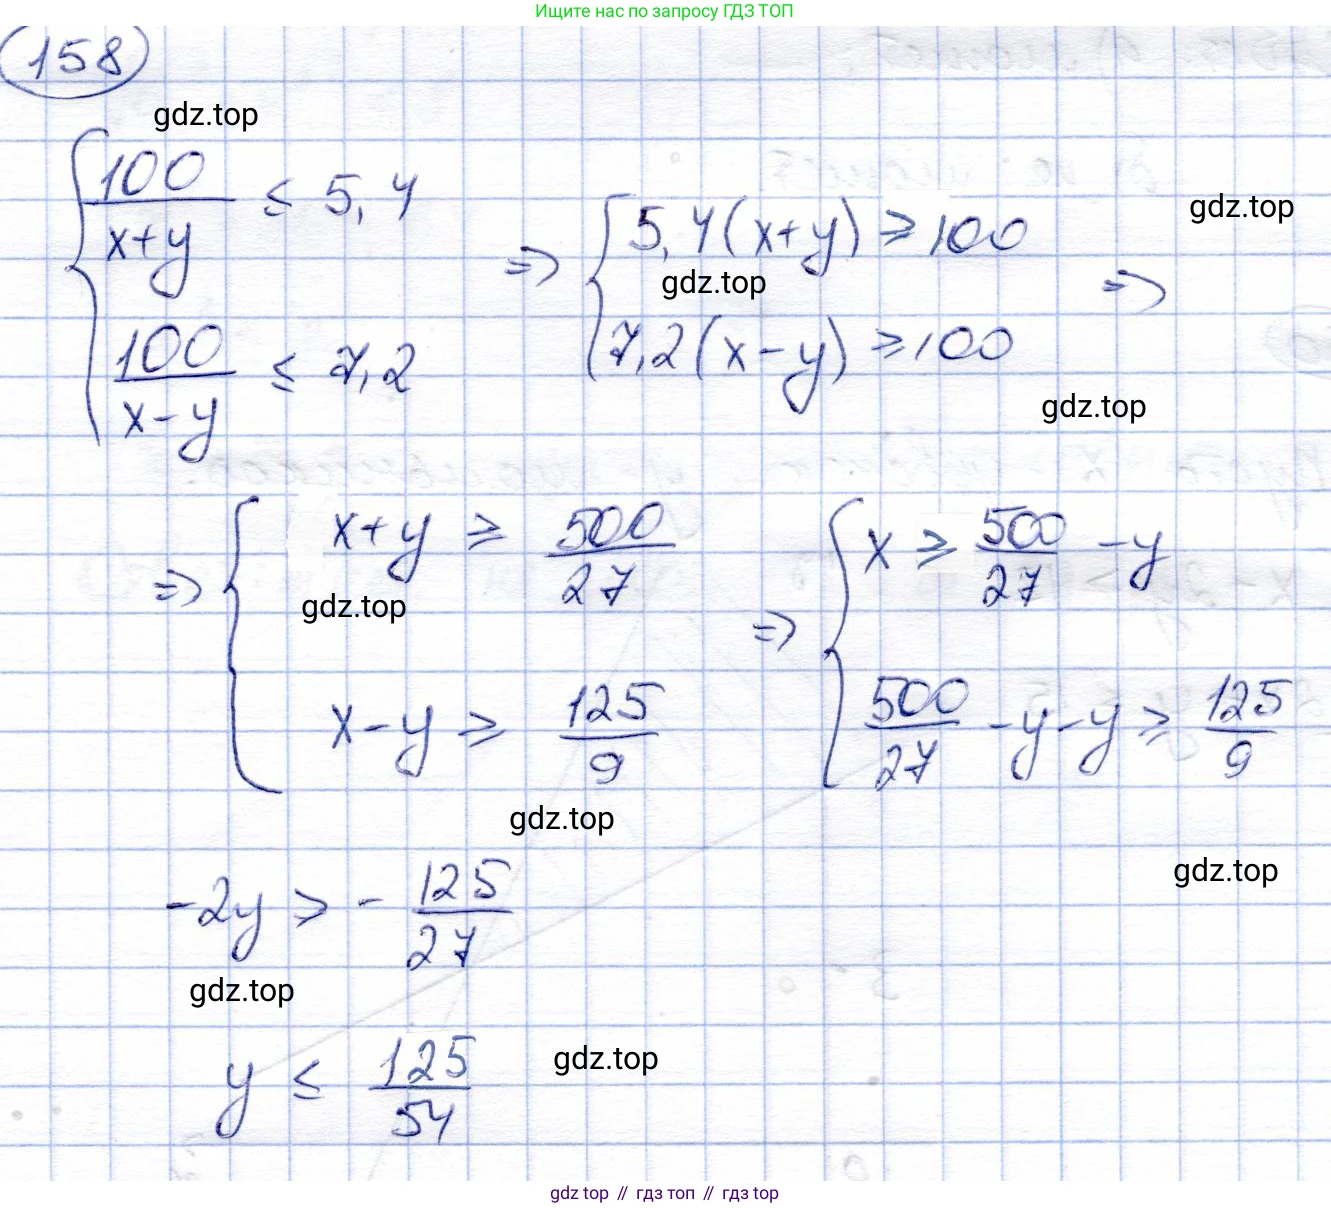 Ищите нас по запросу ГДЗ ТОП
158
gdz.top
{ 100/(x+y) ≤ 5,4
{ 100/(x-y) ≤ 7,2
=> { 5,4(x+y) ≥ 100
gdz.top
gdz.top
{ 7,2(x-y) ≥ 100 =>
gdz.top
=> { x+y ≥ 500/27
gdz.top
{ x-y ≥ 125/9
=> { x ≥ 500/27 -y
{ 500/27 -y-y ≥ 125/9
gdz.top
gdz.top
-2y ≥ - 125/27
gdz.top
y ≤ 125/54
gdz.top
gdz top // гдз топ // gdz top